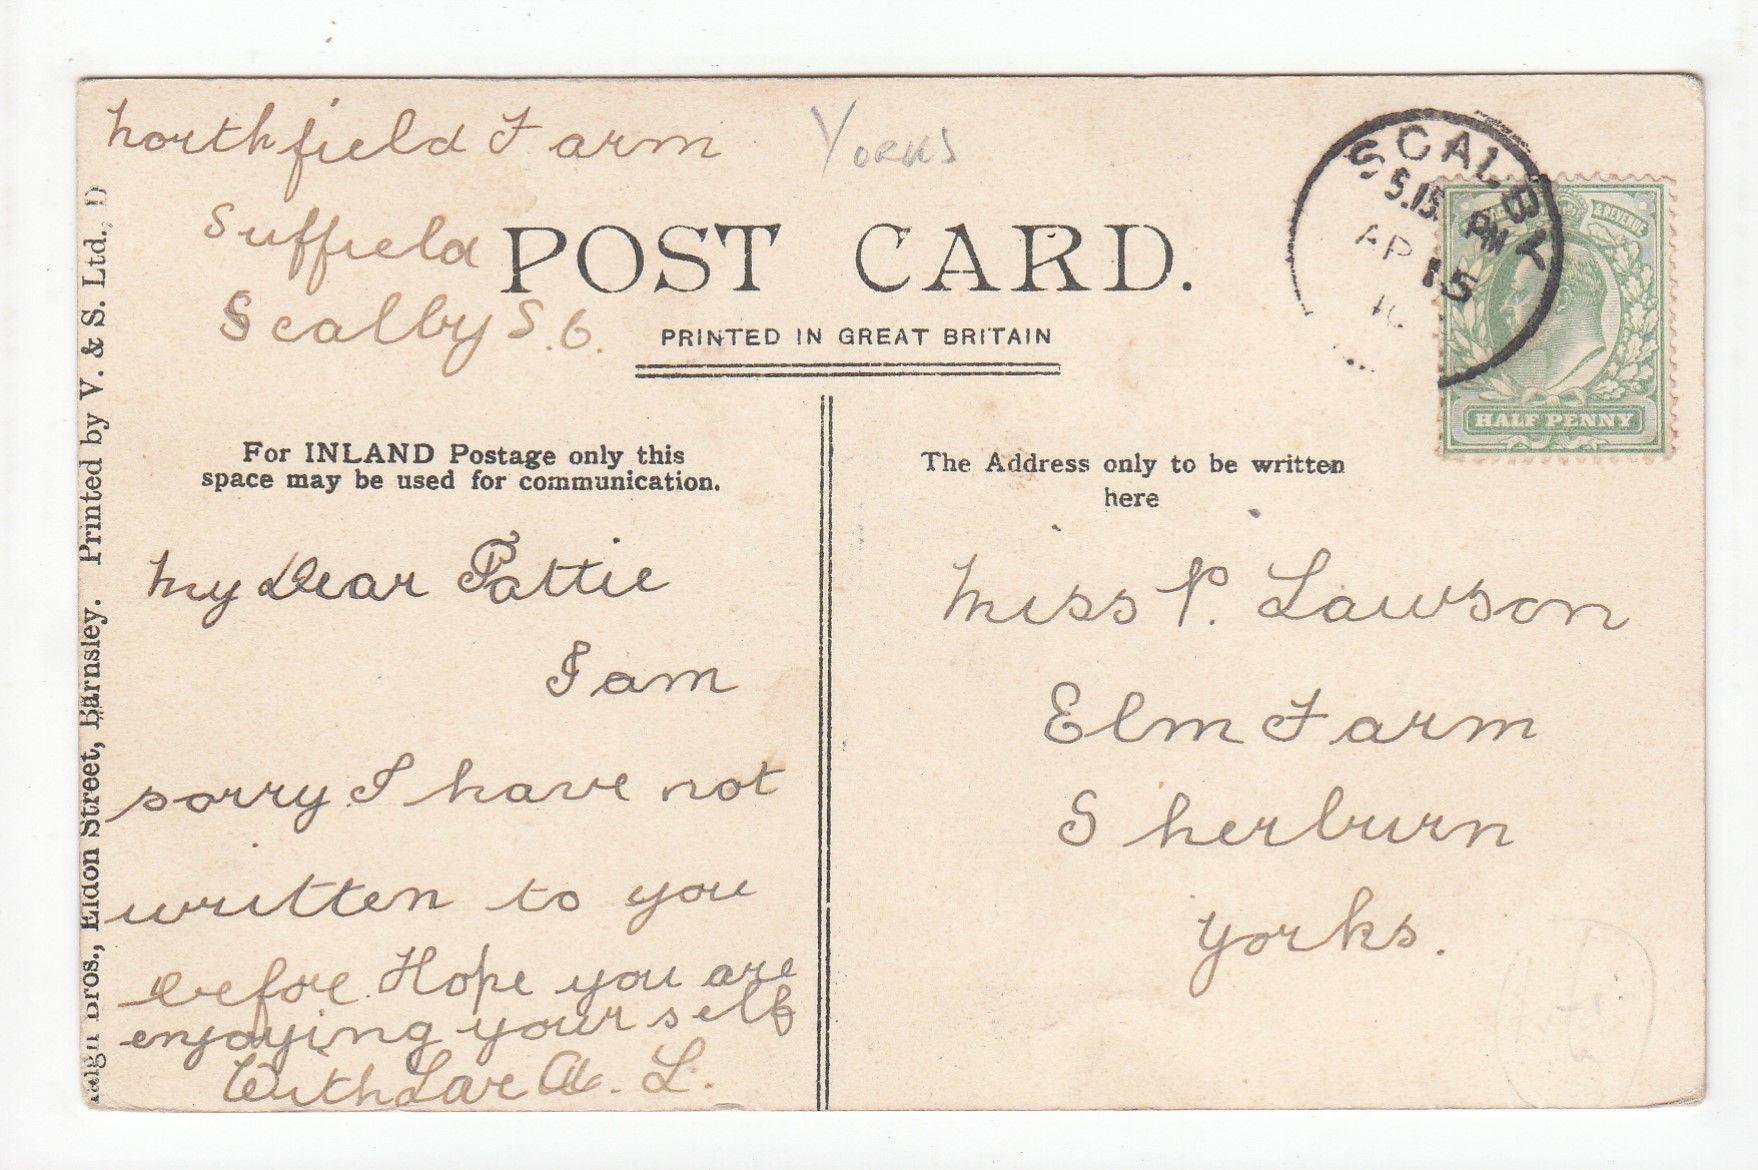 Northfield Farm
Yorks
Suffield
Scalby S.O.
POST CARD.
PRINTED IN GREAT BRITAIN
SCALBY
5.15 PM
AP 15
10
& REVENUE
HALF PENNY
Bros., Eldon Street, Barnsley. Printed by V. & S. Ltd., D
For INLAND Postage only this
space may be used for communication.
My Dear Pattie
I am
sorry I have not
written to you
before. Hope you are
enjoying yourself
With Love A. L.
The Address only to be written
here
Miss P. Lawson
Elm Farm
Sherburn
Yorks.